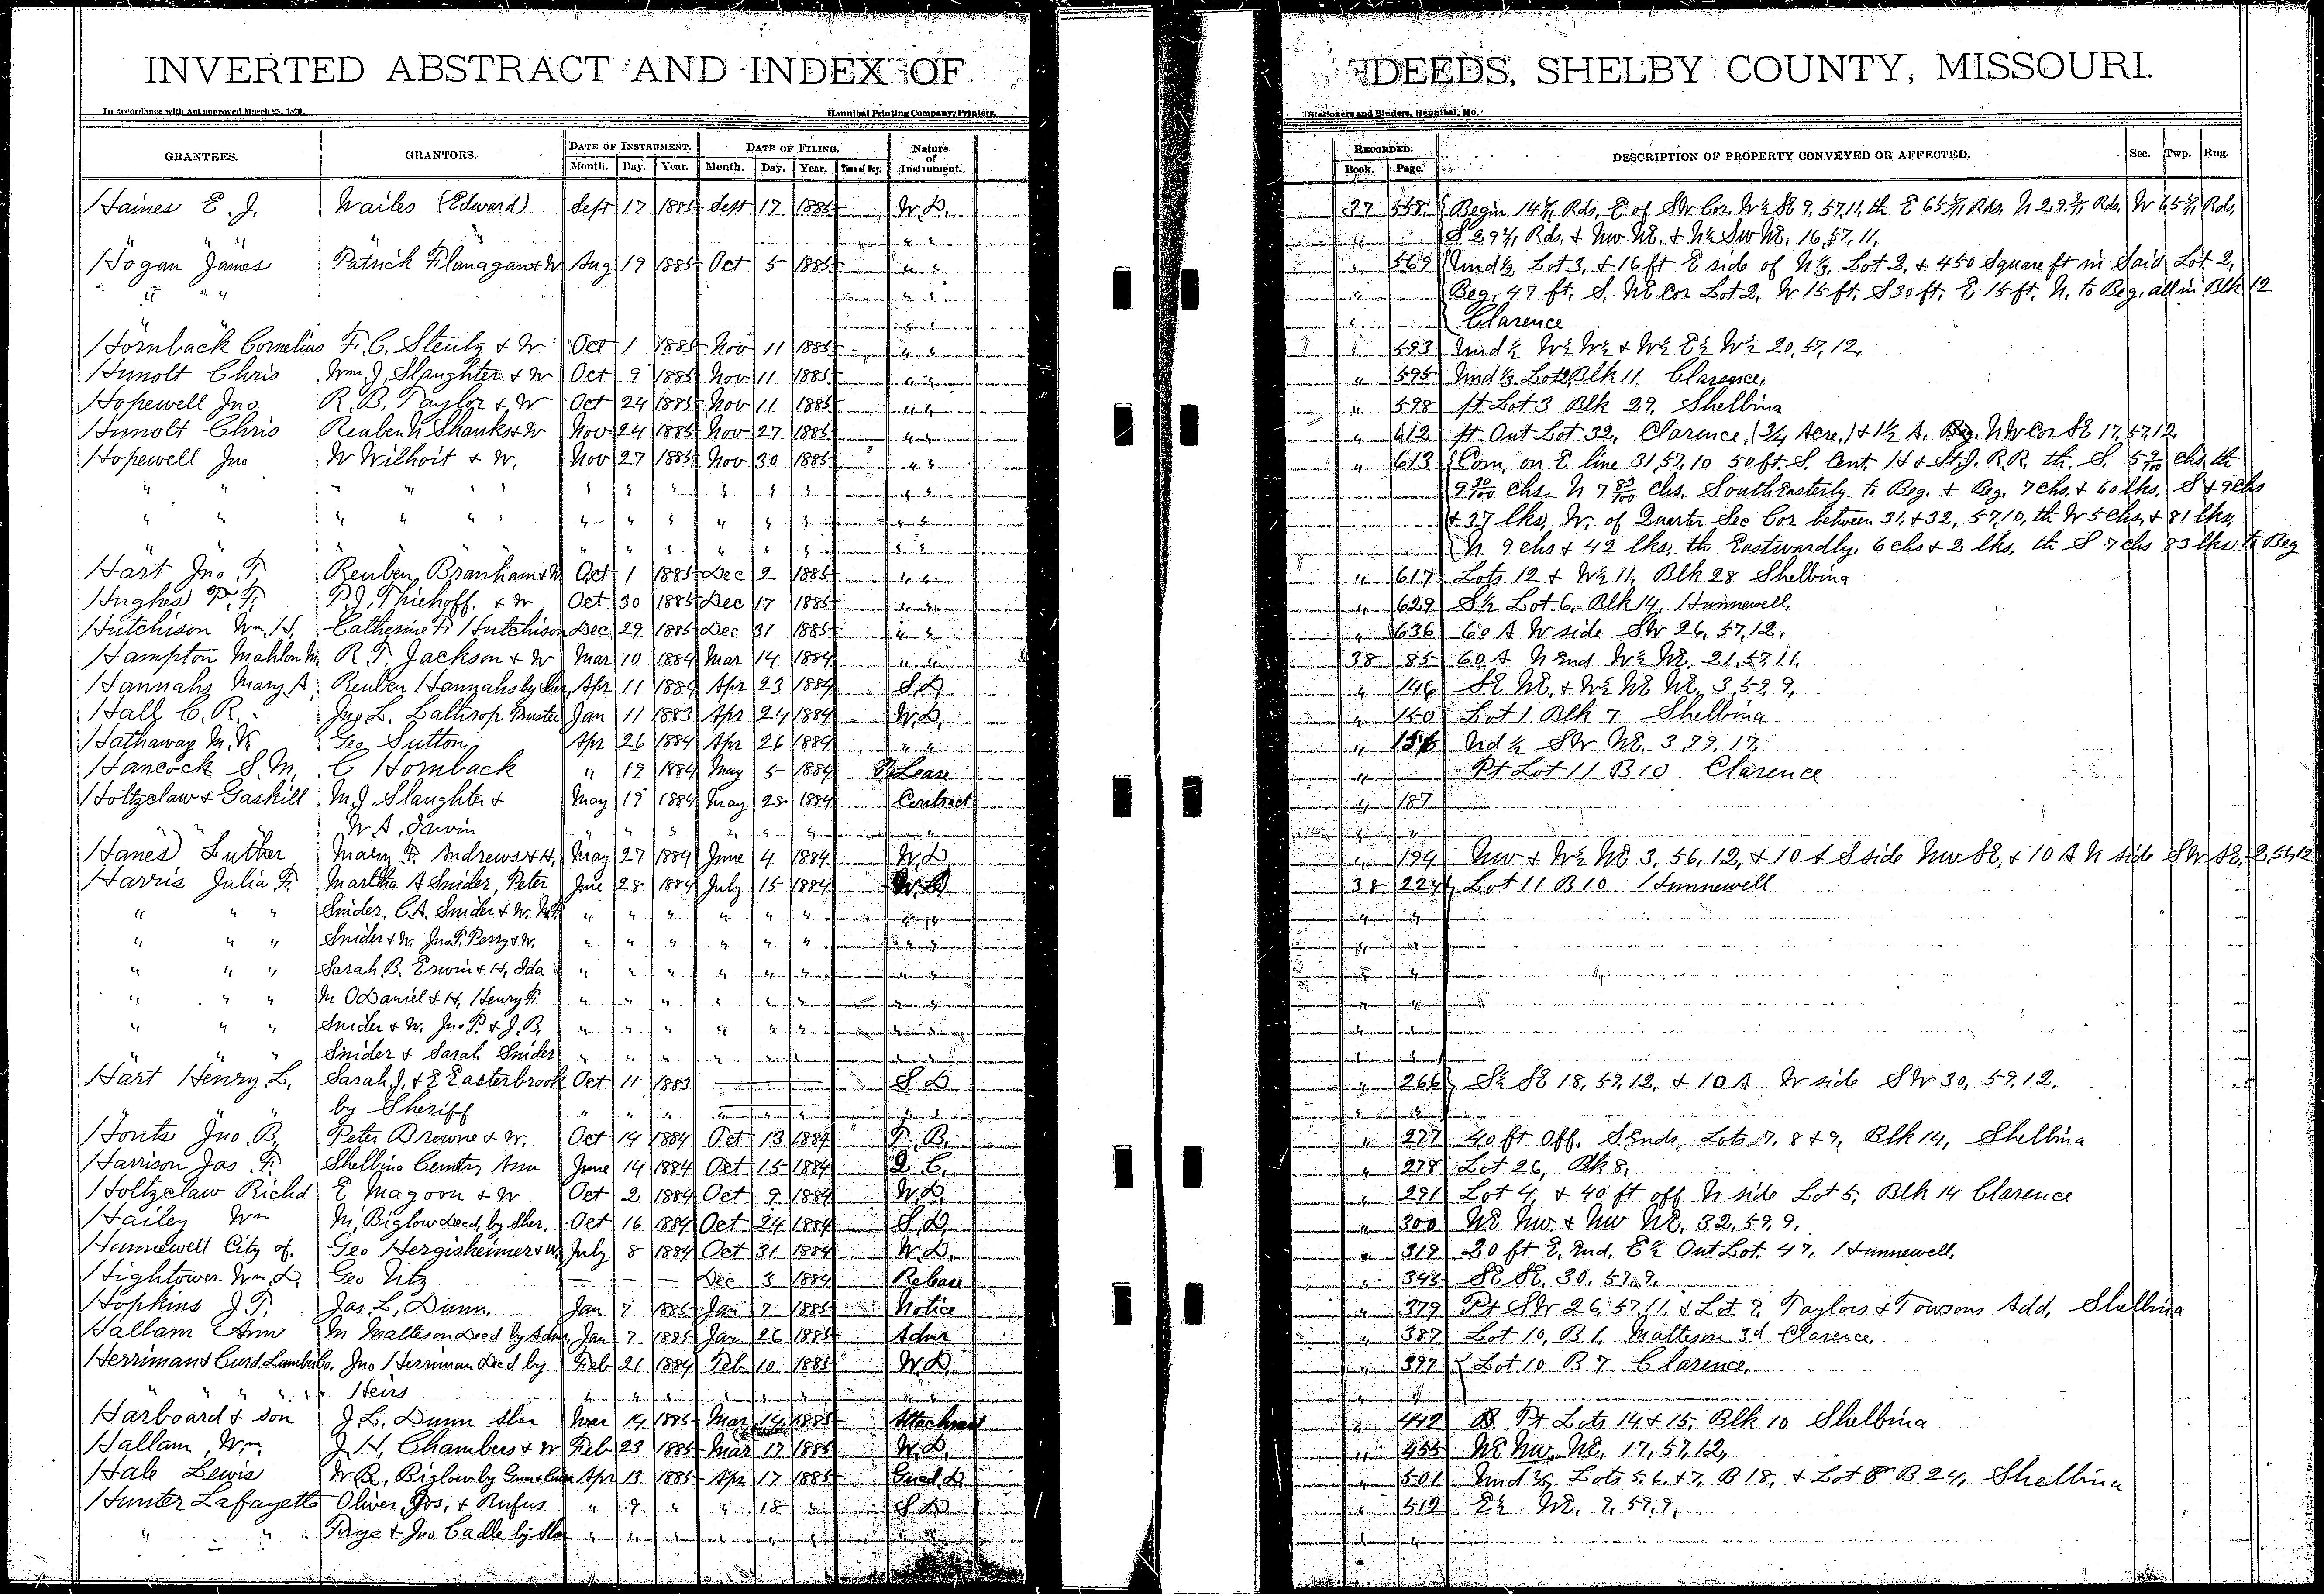 INVERTED ABSTRACT AND INDEX OF DEEDS, SHELBY COUNTY, MISSOURI.
In accordance with Act approved March 25, 1879. Hannibal Printing Company, Printers, Stationers and Binders, Hannibal, Mo.
GRANTEES. GRANTORS. DATE OF INSTRUMENT. DATE OF FILING. Nature of Instrument. RECORDED. DESCRIPTION OF PROPERTY CONVEYED OR AFFECTED. Sec. Twp. Rng.
Month. Day. Year. Month. Day. Year. Time of Day. Book. Page.
Haines E. J. Wailes (Edward) Sept 17 1885 Sept 17 1885 W. D. 37 558 Begin Rds. E of SW Cor. W½ SE 9, 57, 11, th E Rds. N Rds. W Rds.
" " " " " S Rds. & NW NE. & N½ SW NE. 16, 57, 11,
Hogan James Patrick Flanagan & W Aug 19 1885 Oct 5 1885 " " " 569 Und ½ Lot 3, & 16 ft E side of N⅓ Lot 2, & 450 Square ft in Said Lot 2,
" " " " " " Beg. 47 ft. S. NE Cor Lot 2, W 15 ft. S 30 ft. E 15 ft. N. to Beg. all in Blk 12
" " " Clarence
Hornback Cornelius F. C. Stentz & W Oct 1 1885 Nov 11 1885 " " " 593 Und ½ W½ W½ & W½ E½ W½ 20, 57, 12,
Hunolt Chris Wm. J. Slaughter & W Oct 9 1885 Nov 11 1885 " " " 595 Und ⅓ Lot 2 Blk 11 Clarence,
Hopewell Jno R. B. Taylor & W Oct 24 1885 Nov 11 1885 " " " 598 pt Lot 3 Blk 29, Shelbina
Hunolt Chris Reuben N Shanks & W Nov 24 1885 Nov 27 1885 " " " 612 pt Out Lot 32, Clarence, (¾ Acre,) & 1½ A. Beg. NW Cor SE 17, 57, 12
Hopewell Jno W Wilhoit & W. Nov 27 1885 Nov 30 1885 " " " 613 Com. on E line 31, 57, 10 50 ft. S. Cent. H & St. J. R.R. th. S. chs. th
" " " " " " " " " " " " " " chs N 7 chs. SouthEasterly to Beg. & Beg. 7 chs. & 60 lks. S & 9 chs
" " " " " " " " " " " " " " & 37 lks, W. of Quarter Sec Cor between 31, & 32, 57, 10, th W 5 chs, & 81 lks,
" " " " " " " " N 9 chs & 42 lks, th Eastwardly, 6 chs & 2 lks, th S 7 chs 83 lks to Beg
Hart Jno. T. Reuben Branham & W Oct 1 1885 Dec 2 1885 " " " 617 Lots 12 & W½ 11, Blk 28 Shelbina
Hughes P. F. P. J. Thiehoff. & W Oct 30 1885 Dec 17 1885 " " " 629 S½ Lot 6, Blk 14, Hunnewell,
Hutchison Wm. H. Catherine F. Hutchison Dec 29 1885 Dec 31 1885 " " " 636 60 A W side SW 26, 57, 12,
Hampton Mahlon M. R. T. Jackson & W Mar 10 1884 Mar 14 1884 " " 38 85 60 A N End W½ NE, 21, 57, 11,
Hannahs Mary A. Reuben Hannahs by Sher. Apr 11 1884 Apr 23 1884 S. D " 146 SE NE, & W½ NE NE, 3, 59, 9,
Hall C. R. Jno. L. Lathrop Trustee Jan 11 1883 Apr 24 1884 W. D. " 150 Lot 1 Blk 7 Shelbina
Hathaway M. K. Geo Sutton Apr 26 1884 Apr 26 1884 " " " Und ½ SW NE. 3
Hancock S. M. C Hornback " 19 1884 May 5 1884 Lease " Pt Lot 11 B 10 Clarence
Holtzclaw & Gaskill M. J. Slaughter & May 19 1884 May 28 1884 Contract " 187
" " W A. Irwin " " " " " " " " "
Hanes Luther Mary F. Andrews & H. May 27 1884 June 4 1884 W. D " 194 NW & W½ NE 3, 56, 12, & 10 A S side NW SE, & 10 A N side SW SE, 2, 56, 12
Harris Julia F. Martha A Snider, Peter June 28 1884 July 15 1884 W. D 38 224 Lot 11 B 10 Hunnewell
" " " Snider, C. A. Snider & W. " " " " " " " " "
" " " Snider & W. Jno. P. Perry & W. " " " " " " " " "
" " " Sarah B. Erwin & H, Ida " " " " " " " " "
" " " M ODaniel & H, Henry F. " " " " " " " " "
" " " Snider & W. Jno. P. & J. B. " " " " " " " " "
" " " Snider & Sarah Snider " " " " " " " " "
Hart Henry L. Sarah J. & E Easterbrook Oct 11 1883 S D " 266 S½ SE 18, 59, 12, & 10 A W side SW 30, 59, 12,
" " " by Sheriff " " " " " " " "
Honts Jno. B. Peter Browne & W. Oct 14 1884 Oct 13 1884 " 277 40 ft off. S Ends, Lots 7, 8 & 9, Blk 14, Shelbina
Harrison Jas F. Shelbina Cemtry Assn June 14 1884 Oct 15 1884 Q. C. " 278 Lot 26, Blk 8,
Holtzclaw Richd E Magoon & W Oct 2 1884 Oct 9 1884 W. D. " 291 Lot 4, & 40 ft off N side Lot 5, Blk 14 Clarence
Hailey Wm M. Biglow Decd, by Sher. Oct 16 1884 Oct 24 1884 S. D. " 300 NE NW. & NW NE, 32, 59, 9,
Hunnewell City of. Geo Hergisheimer & W. July 8 1884 Oct 31 1884 W. D. " 319 20 ft E. End, E½ Out Lot. 47, Hunnewell,
Hightower Wm. D. Geo Utz Dec 3 1884 Release " 345 SE SE. 30, 57, 9,
Hopkins J. T. Jas. L. Dunn, Jan 7 1885 Jan 7 1885 Notice " 379 Pt SW 26, 57, 11, & Lot 9, Taylors & Towsons Add, Shelbina
Hallam Ann M Matteson Decd by Admr, Jan 7 1885 Jan 26 1885 Admr " 387 Lot 10, B 1, Matteson 3d Clarence,
Herriman & Curd Lumber Co. Jno Herriman Decd by Feb 21 1884 Feb 10 1885 W. D " 397 Lot 10 B 7 Clarence,
" " " " Heirs " " " " " " " " "
Harboard & Son J. L. Dunn Sher Mar 14 1885 Mar 14 1885 Attachment " 442 Pt Lots 14 & 15, Blk 10 Shelbina
Hallam, Wm. J. H. Chambers & W Feb 23 1885 Mar 17 1885 W. D. " 455 NE NW, NE, 17, 57, 12,
Hale Lewis W. R. Biglow by Apr 13 1885 Apr 17 1885 Guad. D " 501 Und Lots 5, 6, & 7, B 18, & Lot 8 B 24, Shelbina
Hunter Lafayette Oliver, Jos, & Rufus " 9 " " 18 " S D " 512 E½ NE. 9, 59, 9,
" " Frye & Jno Cadle by Sher " " " " " " " " "